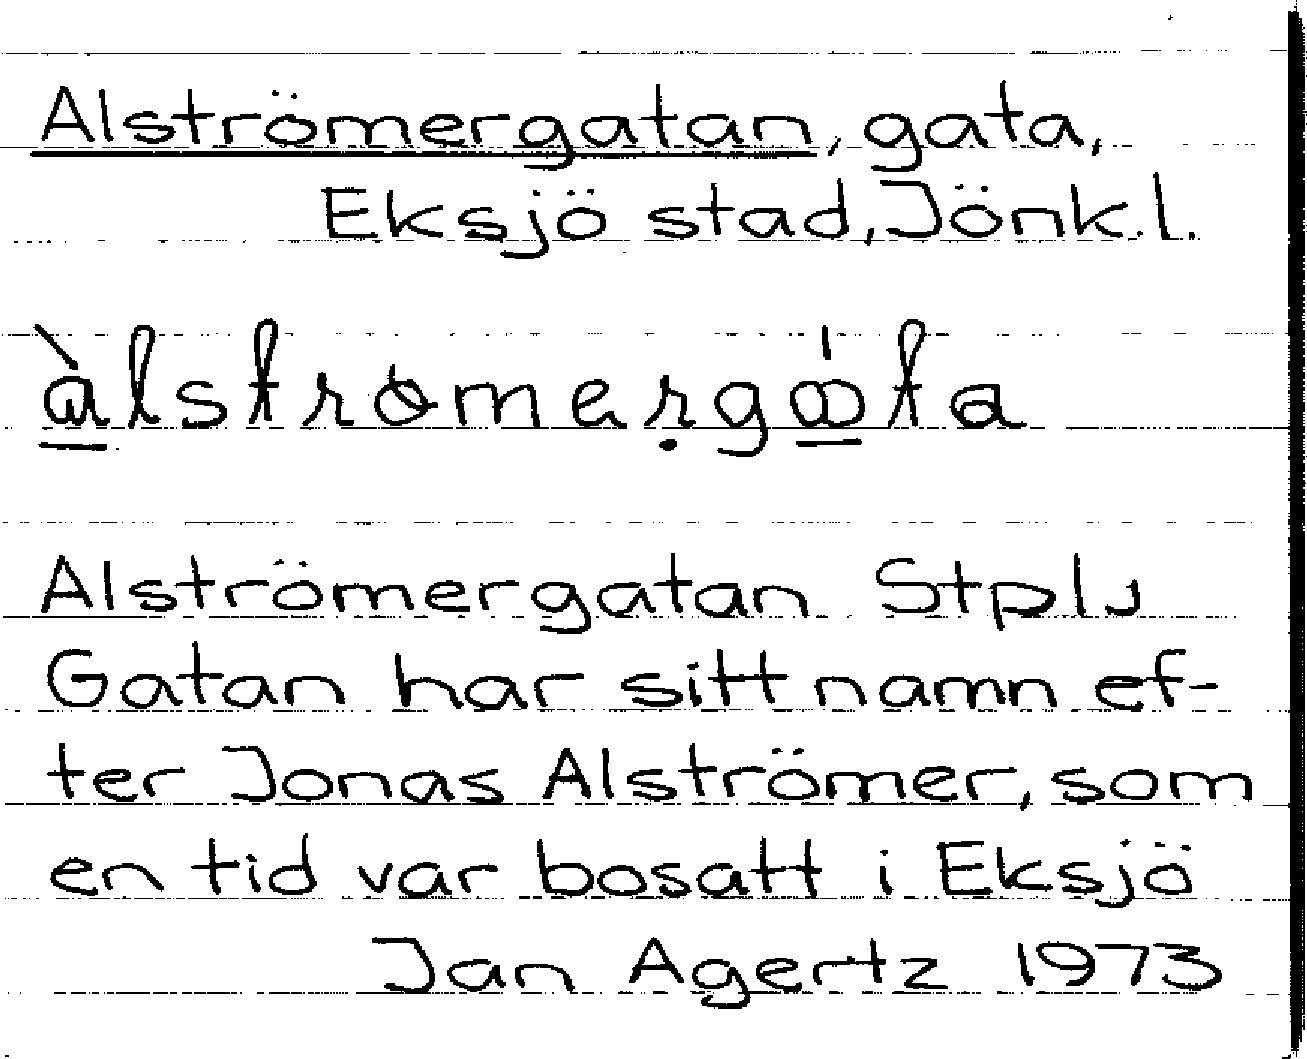 Alströmergatan, gata,
Eksjö stad, Jönk.l.
Alströmergatan Stpl
Gatan har sitt namn ef-
ter Jonas Alströmer, som
en tid var bosatt i Eksjö
Jan Agertz 1973